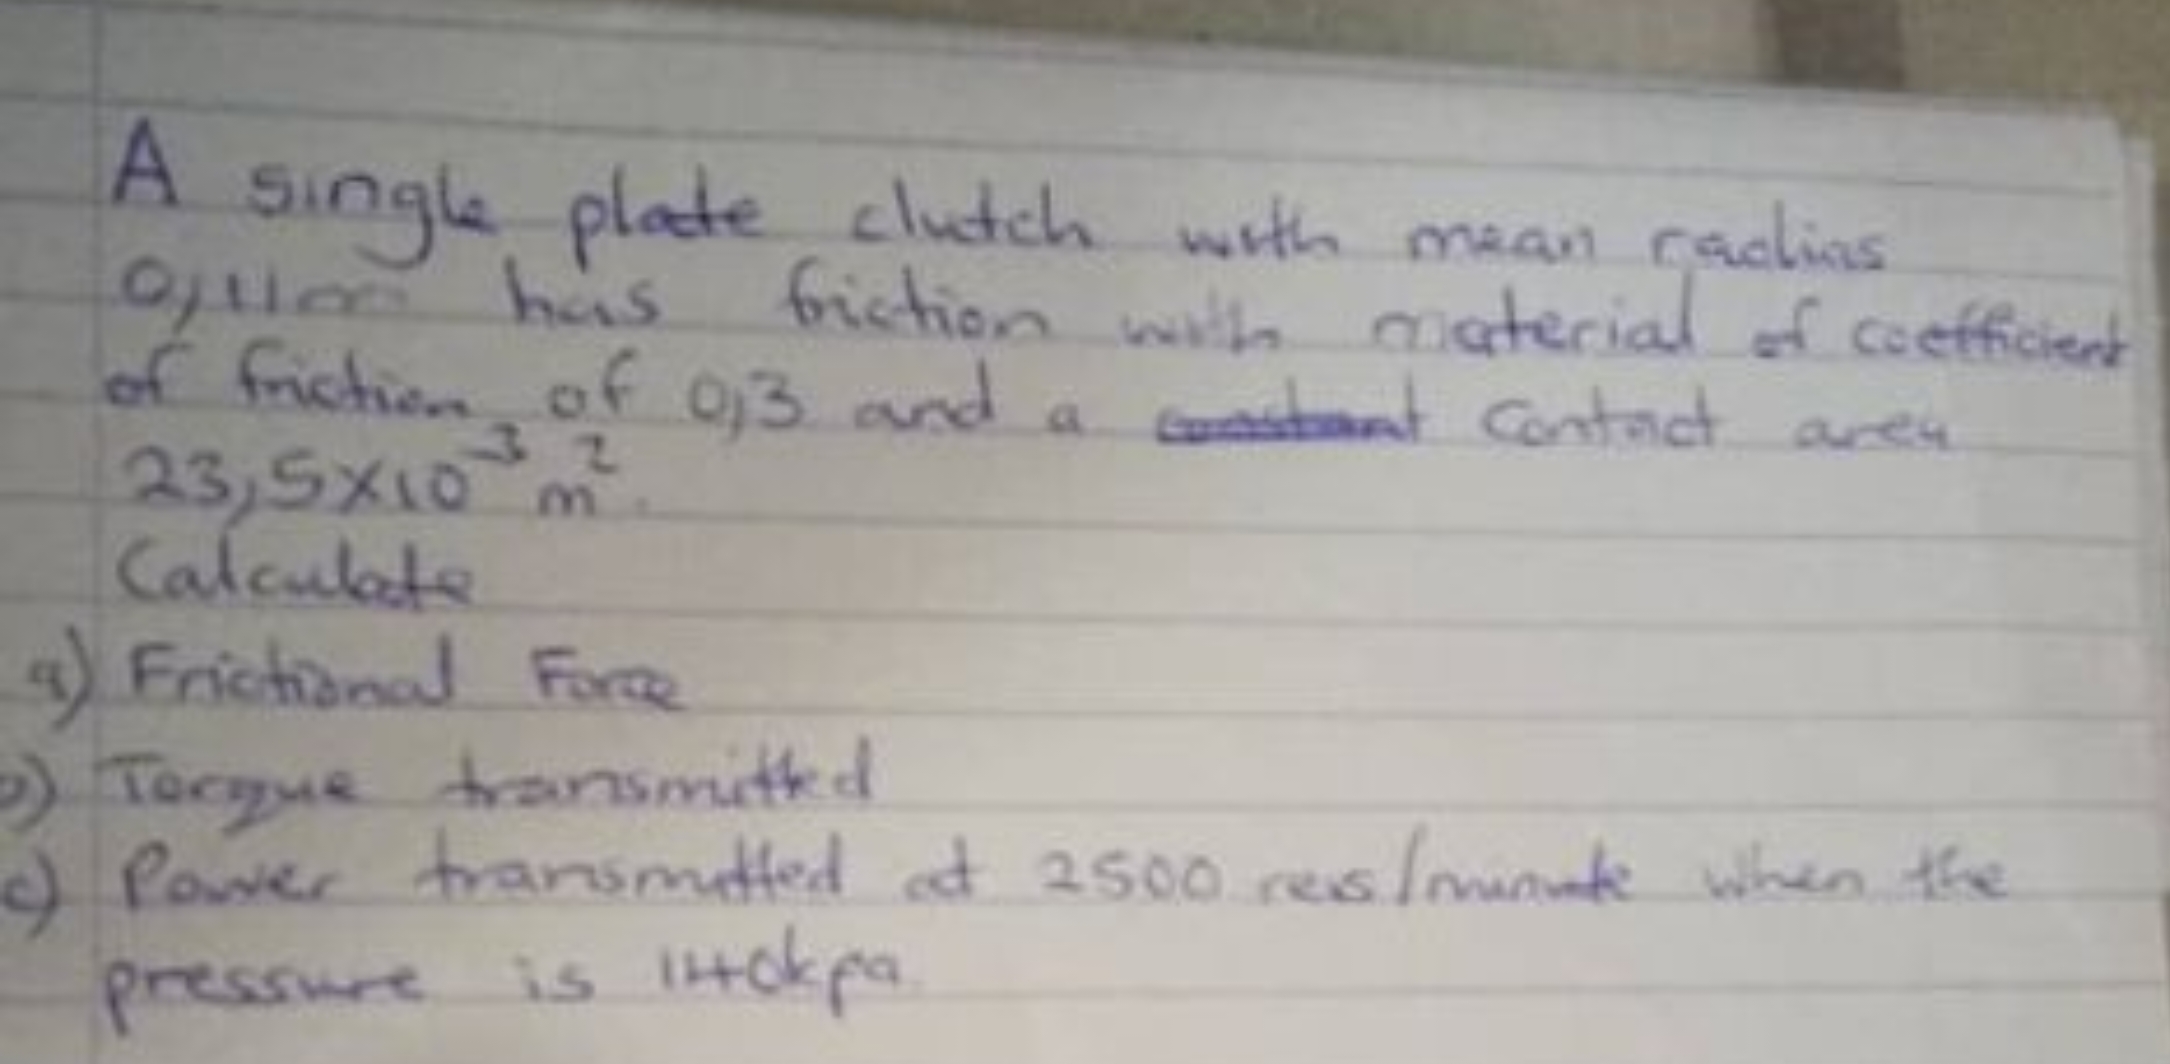 A single plate clutch with mean radius
0,11m has friction with material of coefficient
of friction of 0,3 and a constant contact area
23,5x10⁻³ m².
Calculate
a) Frictional Force
b) Torque transmitted
c) Power transmitted at 2500 revs/minute when the
pressure is 140kpa